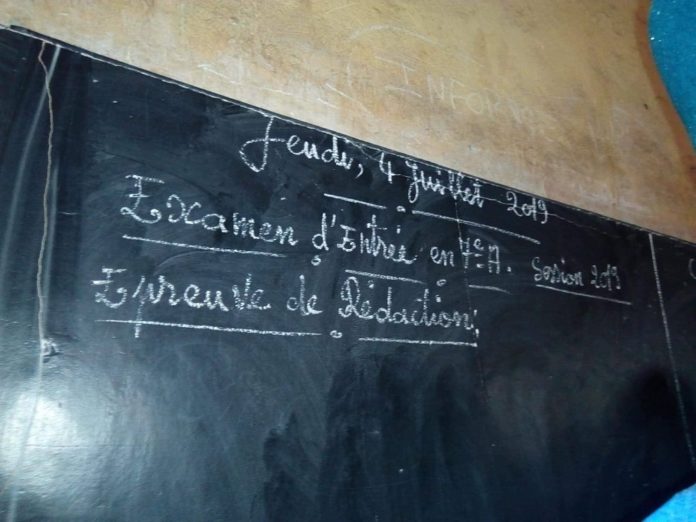 INFORM
Jeudi, 4 Juillet 2019
Examen d'Entrée en 7e A. Session 2019
Epreuve de Rédaction: